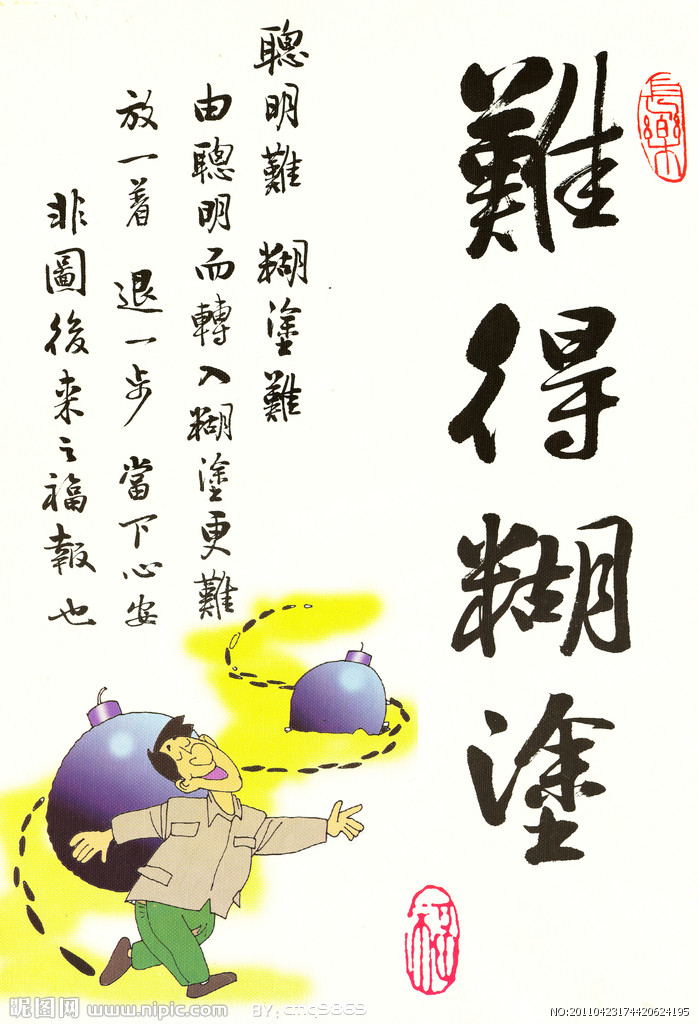 難得糊塗
長樂
聰明難 糊塗難
由聰明而轉入糊塗更難
放一着 退一步 當下心安
非圖後来之福報也
昵图网 www.nipic.com BY:cmq9869
NO:20110423174420624195